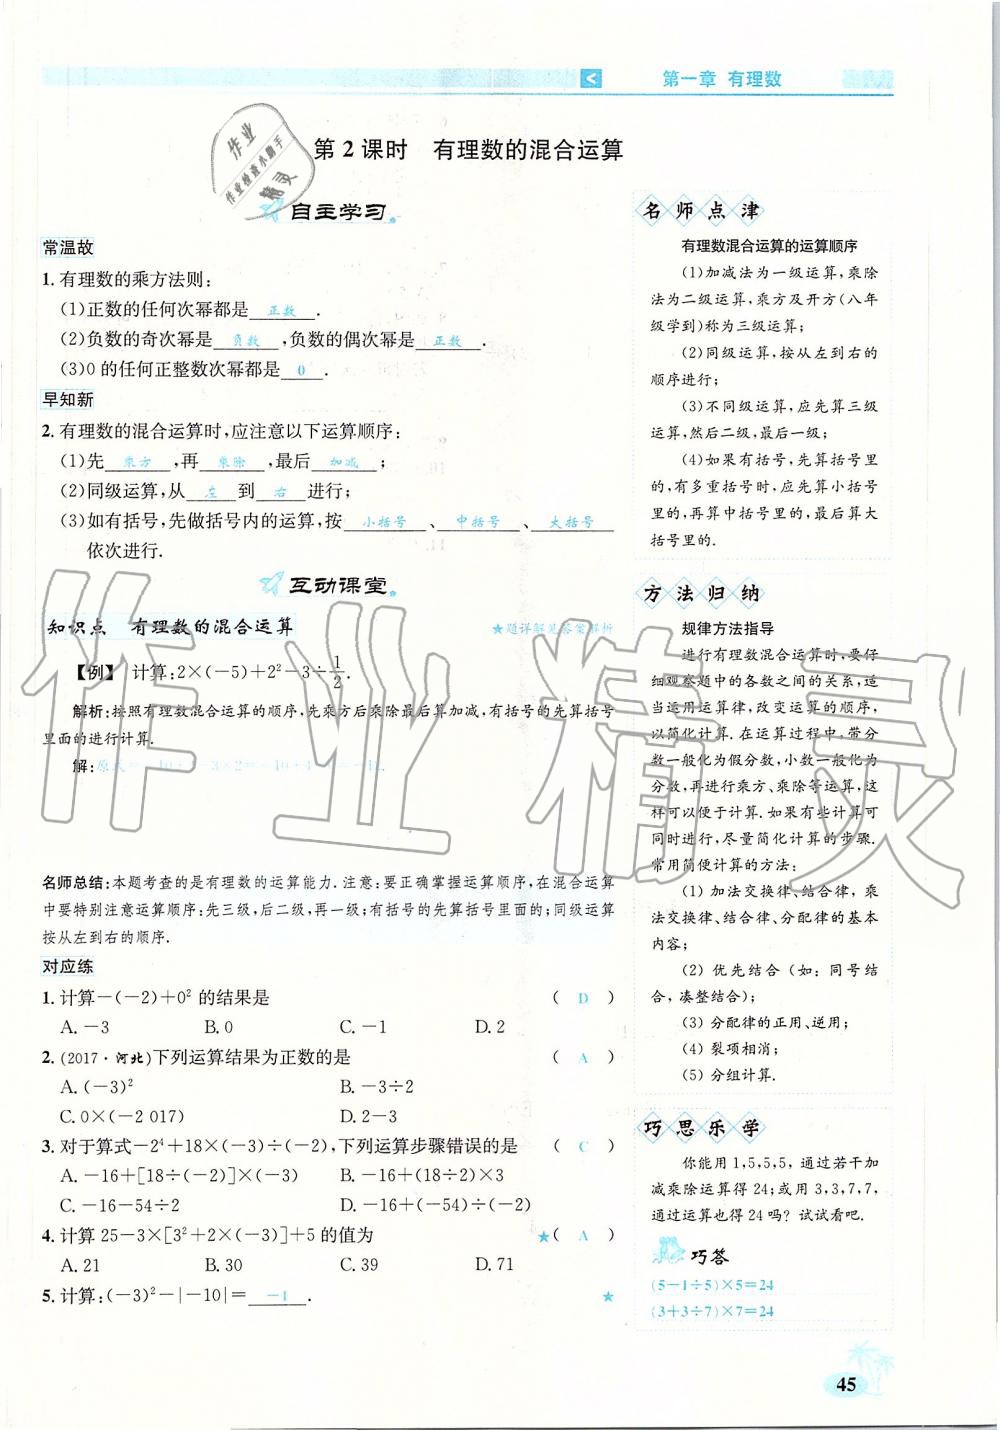 第一章 有理数
第2课时 有理数的混合运算
自主学习
常温故
1. 有理数的乘方法则:
(1)正数的任何次幂都是 正数 .
(2)负数的奇次幂是 负数 ,负数的偶次幂是 正数 .
(3)0的任何正整数次幂都是 0 .
早知新
2. 有理数的混合运算时,应注意以下运算顺序:
(1)先 乘方 ,再 乘除 ,最后 加减 ;
(2)同级运算,从 左 到 右 进行;
(3)如有括号,先做括号内的运算,按 小括号 、 中括号 、 大括号
依次进行.
互动课堂
知识点 有理数的混合运算
★题详解见答案解析
【例】 计算:2×(-5)+2²-3÷1/2.
解析:按照有理数混合运算的顺序,先乘方后乘除最后算加减,有括号的先算括号
里面的进行计算.
解:原式=-10+4-3×2=-10+4
名师总结:本题考查的是有理数的运算能力.注意:要正确掌握运算顺序,在混合运算
中要特别注意运算顺序:先三级,后二级,再一级;有括号的先算括号里面的;同级运算
按从左到右的顺序.
对应练
1. 计算-(-2)+0²的结果是 ( D )
A. -3 B. 0 C. -1 D. 2
2. (2017·河北)下列运算结果为正数的是 ( A )
A. (-3)² B. -3÷2
C. 0×(-2 017) D. 2-3
3. 对于算式-2⁴+18×(-3)÷(-2),下列运算步骤错误的是 ( C )
A. -16+[18÷(-2)]×(-3) B. -16+(18÷2)×3
C. -16-54÷2 D. -16+(-54)÷(-2)
4. 计算25-3×[3²+2×(-3)]+5的值为 ★( A )
A. 21 B. 30 C. 39 D. 71
5. 计算:(-3)²-|-10|= -1 . ★
名师点津
有理数混合运算的运算顺序
(1)加减法为一级运算,乘除
法为二级运算,乘方及开方(八年
级学到)称为三级运算;
(2)同级运算,按从左到右的
顺序进行;
(3)不同级运算,应先算三级
运算,然后二级,最后一级;
(4)如果有括号,先算括号里
的,有多重括号时,应先算小括号
里的,再算中括号里的,最后算大
括号里的.
方法归纳
规律方法指导
进行有理数混合运算时,要仔
细观察题中的各数之间的关系,适
当运用运算律,改变运算的顺序,
以简化计算.在运算过程中,带分
数一般化为假分数,小数一般化为
分数,再进行乘方、乘除等运算,这
样可以便于计算.如果有些计算可
同时进行,尽量简化计算的步骤.
常用简便计算的方法:
(1) 加法交换律、结合律,乘
法交换律、结合律、分配律的基本
内容;
(2) 优先结合(如:同号结
合,凑整结合);
(3) 分配律的正用、逆用;
(4) 裂项相消;
(5) 分组计算.
巧思乐学
你能用1,5,5,5,通过若干加
减乘除运算得24;或用3,3,7,7,
通过运算也得24吗?试试看吧.
巧答
(5-1÷5)×5=24
(3+3÷7)×7=24
45
作业
作业检查小助手
精灵
作业精灵